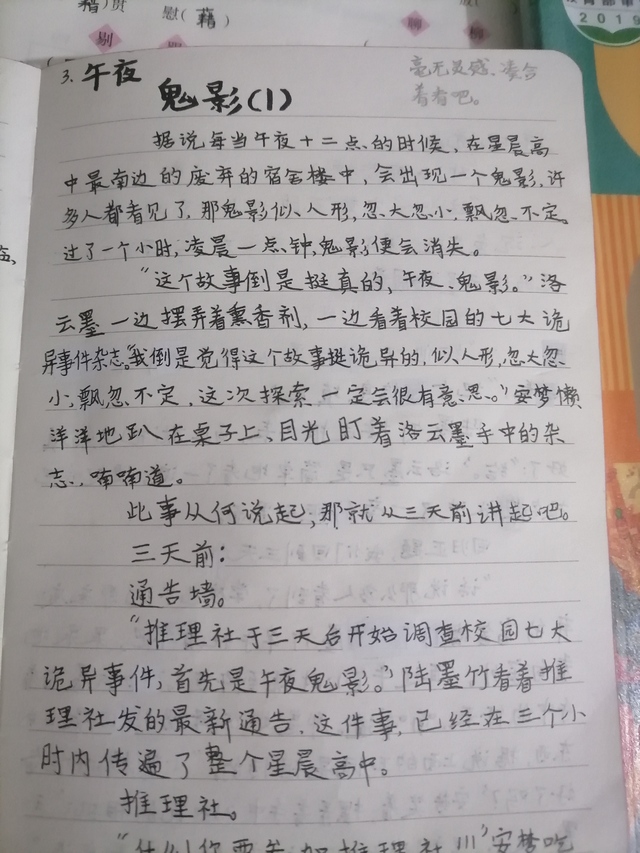 藉 贯 慰(藉)
聊
剔
2019
3. 午夜
鬼影(1)
毫无灵感、凑合
着看吧。
据说每当午夜十二点的时候,在星晨高
中最南边的废弃的宿舍楼中,会出现一个鬼影,许
多人都看见了,那鬼影似人形,忽大忽小,飘忽不定。
过了一个小时,凌晨一点钟,鬼影便会消失。
“这个故事倒是挺真的,午夜、鬼影。”洛
云墨一边摆弄着熏香剂,一边看着校园的七大诡
异事件杂志。“我倒是觉得这个故事挺诡异的,似人形,忽大忽
小,飘忽不定,这次探索一定会很有意思。”安梦懒
洋洋地趴在桌子上、目光盯着洛云墨手中的杂
志,喃喃道。
此事从何说起,那就从三天前讲起吧。
三天前:
通告墙。
“推理社于三天台开始调查校园七大
诡异事件,首先是午夜鬼影。”陆墨竹看着推
理社发的最新通告,这件事,已经在三个小
时内传遍了整个星晨高中。
推理社。
“什么你要参加推理社!!!”安梦吃